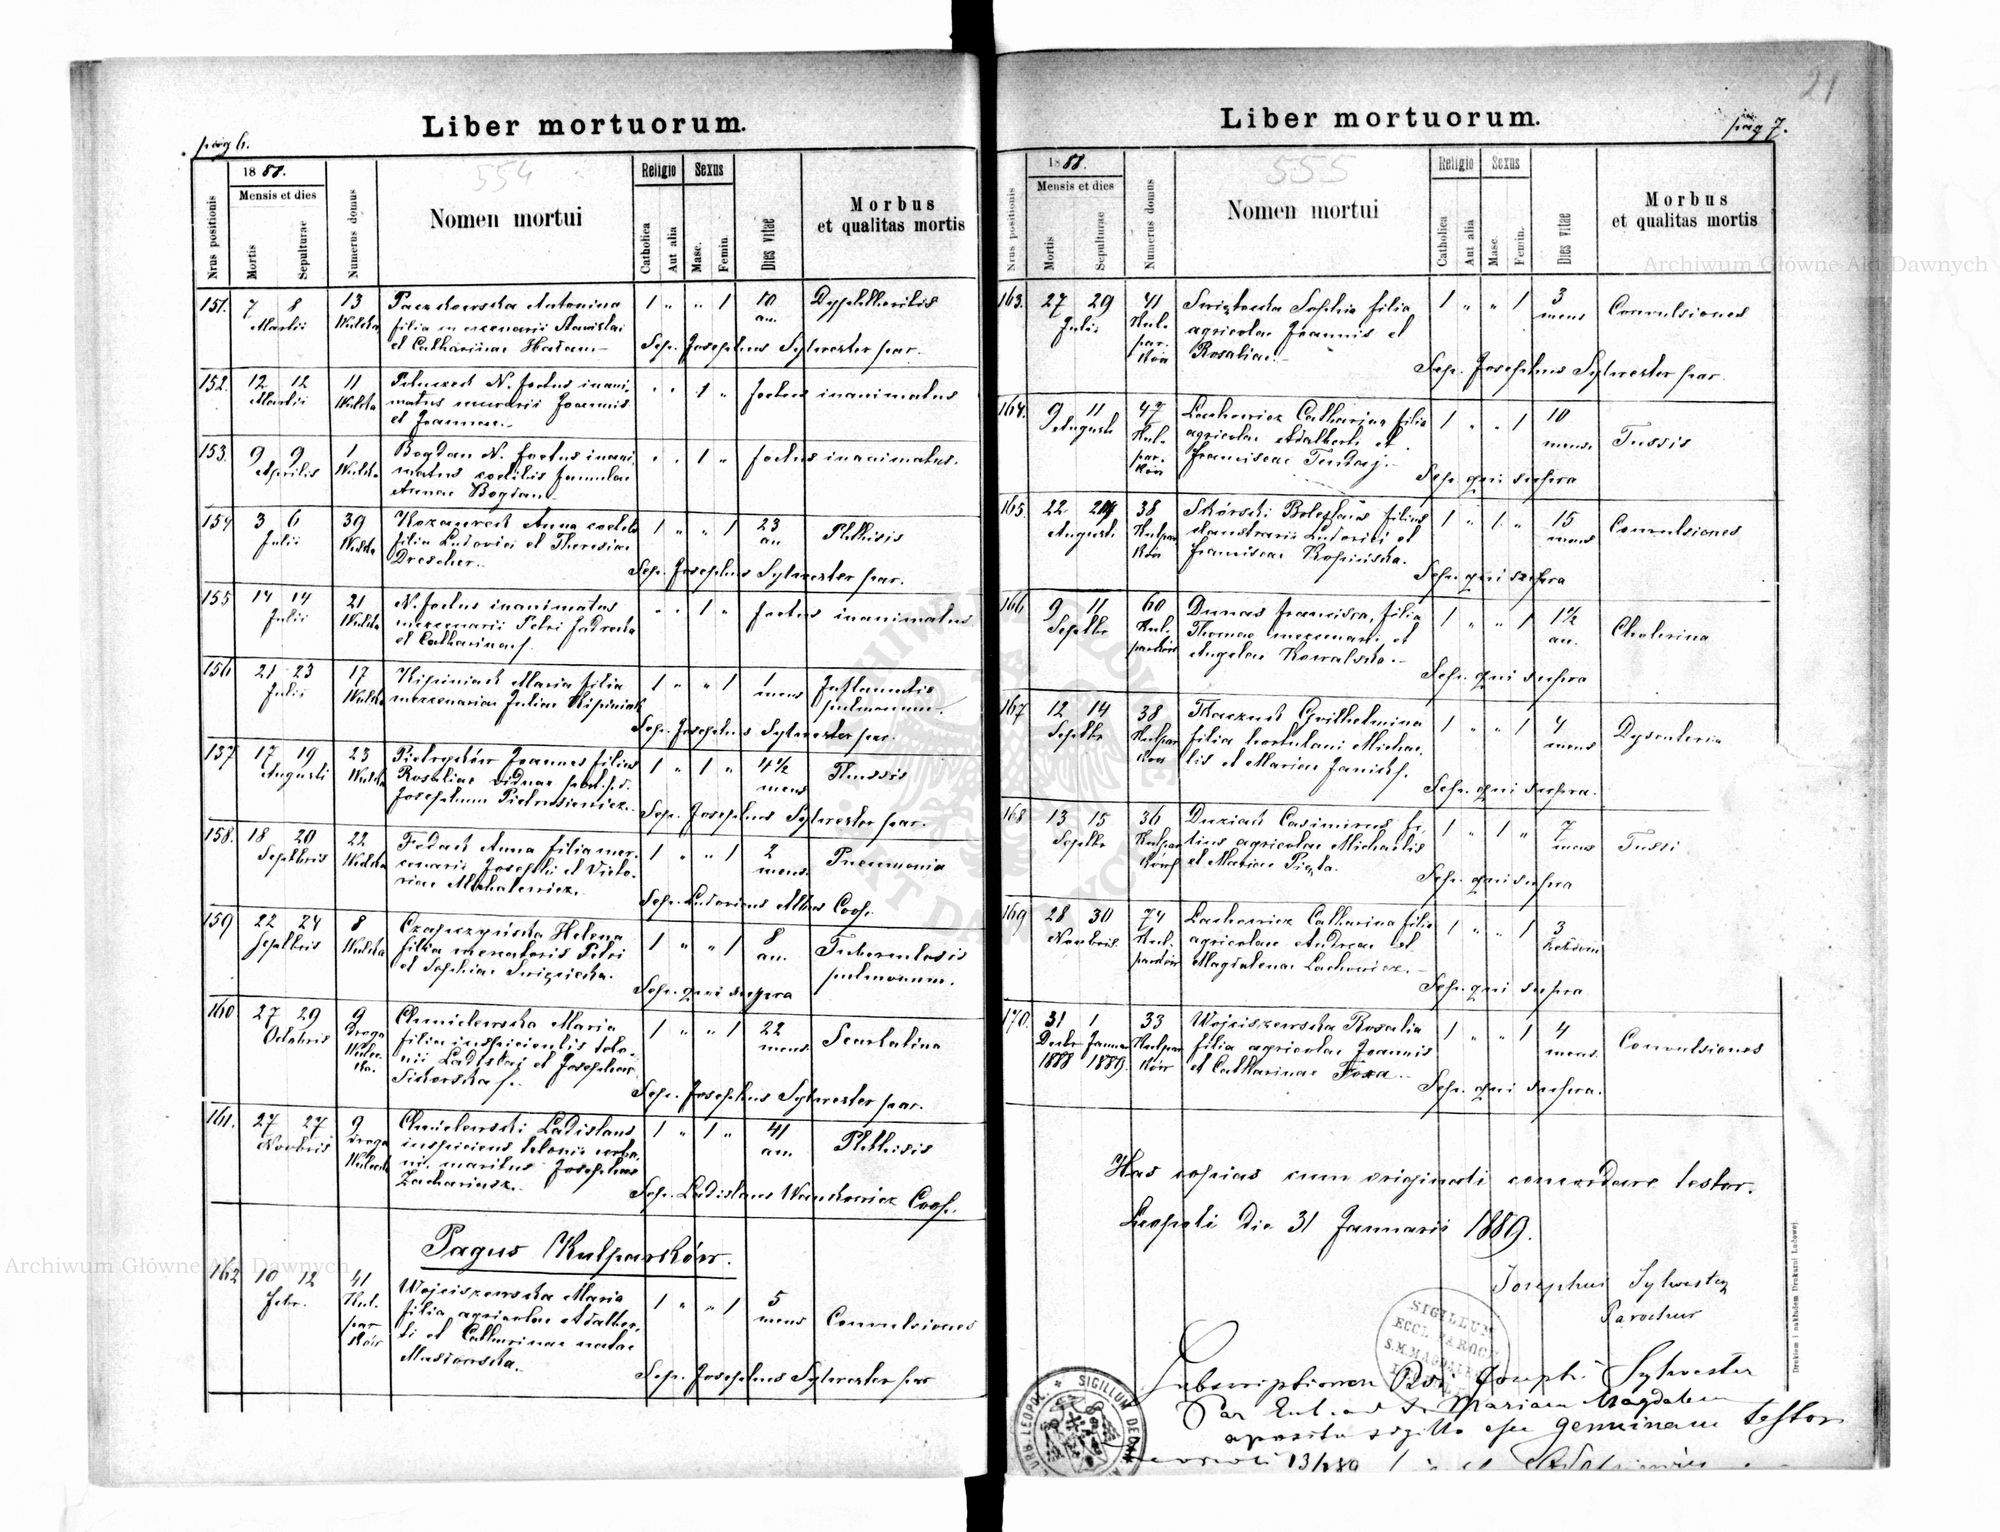 21
Liber mortuorum.
pag 6.
1888.
Mensis et dies
Nrus positionis
Mortis
Sepulturae
Numerus domus
554
Nomen mortui
Religio
Catholica
Aut alia
Sexus
Masc.
Femin.
Dies vitae
Morbus
et qualitas mortis
151. 7 8 13 Paczkowska Antonina 1 " " 1 10 Dyphtheritis
Martii Wulcka filia mercenarii Stanislai an.
et Catharinae Hadam Sep. Josephus Sylwester par.
152. 12 12 11 N. foetus inani- " " 1 " foetus inanimatus
Martii Wulcka matus murarii Joannis
et Joannae
153. 9 9 1 Bogdan N. foetus inani- " " 1 " foetus inanimatus.
Aprilis Wulcka matus coelibis famulae
Annae Bogdan
154 3 6 39 Anna coelebs 1 " " 1 23 Phthisis
Julii Wulcka filia Ludovici et Theresiae an
Drescher. Sep. Josephus Sylwester par.
155 14 14 21 N. foetus inanimatus " " 1 " foetus inanimatus
Julii Wulcka mercenarii Petri
et Catharinae
156 21 23 17 Kipiniak Maria filia 1 " " 1 1 Inflamatio
Julii Wulcka mercenariae Juliae Kipiniak mens pulmonum.
Sep. Josephus Sylwester par.
157 17 19 23 Joannes filius 1 " 1 " 4½ Thussis
Augusti Wulcka Rosaliae viduae mens
Josephum Pietrusiewicz Sep. Josephus Sylwester par.
158. 18 20 22 Fedak Anna filia mer- 1 " " 1 2 Pneumonia
Septbris Wulcka cenarii Josephi et Victo- mens.
riae Michalewicz. Sep. Ludovicus Coop.
159 22 24 8 Helena 1 " " 1 8 Tuberculosis
Septbris Wulcka filia mercatoris Petri an. pulmonum.
et Sophiae Sep. qui supra
160 27 29 9 Chmielewska Maria 1 " " 1 22 Scarlatina
Octobris Droga filia inspicientis telo- mens.
Wulec- nii Ladislai et Josephae
ka. Sikorska Sep. Josephus Sylwester par.
161. 27 27 9 Chmielewski Ladislaus 1 " 1 " 41 Phthisis
Novbris Droga inspiciens telonii urba- an.
ni, maritus Josephae
Zachariasz. Sep. Ladislaus Coop.
Pagus Kulparków.
162 10 12 41 Wojciszewska Maria 1 " " 1 5 Convulsiones
Febr. Kul- filia agricolae Adalber- mens
par ti et Catharinae natae
ków Sep. Josephus Sylwester par
Liber mortuorum.
pag 7.
1888.
Mensis et dies
Nrus positionis
Mortis
Sepulturae
Numerus domus
555
Nomen mortui
Religio
Catholica
Aut alia
Sexus
Masc.
Femin.
Dies vitae
Morbus
et qualitas mortis
163. 27 29 41 Sophia filia 1 " " 1 3 Convulsiones
Julii Kul- agricolae Joannis et mens
par- Rosaliae.
ków Sep. Josephus Sylwester par.
164. 9 11 47 Lachowicz Catharina filia 1 " " 1 10 Tussis
Augusti Kul- agricolae Adalberti et mens.
par- Franciscae
ków Sep. qui supra
165. 22 24 38 Skórski Boleslaus filius 1 " 1 " 15 Convulsiones
Augusti Kulpar Ludovici et mens
ków Franciscae Sep. qui supra
166 9 11 60 Dunas Francisca, filia 1 " " 1 1½ Cholerina
Septbr Kul- Thomae mercenarii, et an.
parków Angelae Kowalska. Sep. qui supra
167 12 14 38 Tkaczuk Gvilhelmina 1 " " 1 4 Dysenteria
Septbr Kulpar filia hortulani Michae- mens
ków lis et Mariae Sep. qui supra.
168 13 15 36 Duziak Casimirus fi- 1 " 1 " 7 Tussi
Septbr Kulpar lius agricolae Michaelis mens
ków et Mariae Sep. qui supra
169 28 30 74 Lachowicz Catharina filia 1 " " 1 3
Novbris Kul- agricolae Andreae et
parków Magdalenae Lachowicz. Sep. qui supra
170. 31 1 33 Wojciszewska Rosalia 1 " " 1 4 Convulsiones
Decbr Januar Kulpar filia agricolae Joannis mens.
1888 1889. ków et Catharinae Foxa. Sep. qui supra.
Has copias cum originali concordare testor.
Leopoli die 31 Januarii 1889.
Josephus Sylwester
Parochus
SIGILLUM
ECCL. PAROCH
S.M. MAGDALE
Subscriptionem Josephi Sylwester
Par S. Mariam Magdalenam
aposito sigillo esse genuinam testor
13/1889
SIGILLUM DECAN
URB. LEOPOL.
Drukiem i nakładem Drukarni Ludowej.
Archiwum Główne Akt Dawnych
Archiwum Główne Akt Dawnych
ARCHIWUM GŁÓWNE AKT DAWNYCH